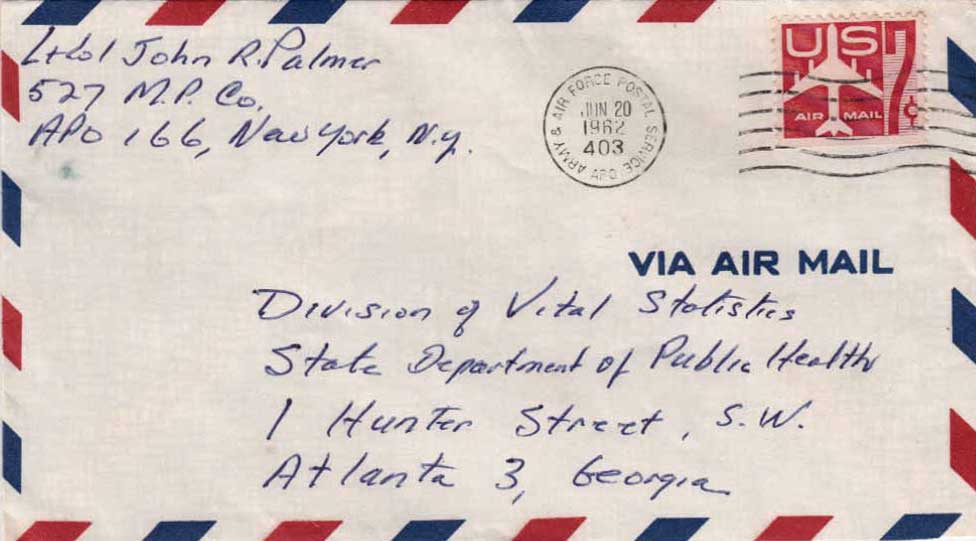 Lt Col John R. Palmer
527 M.P. Co.
APO 166, New York, N.y.
ARMY & AIR FORCE POSTAL SERVICE
JUN 20
1962
403
APO
US
7¢
AIR MAIL
VIA AIR MAIL
Division of Vital Statistics
State Department of Public Health
1 Hunter Street, S.W.
Atlanta 3, Georgia